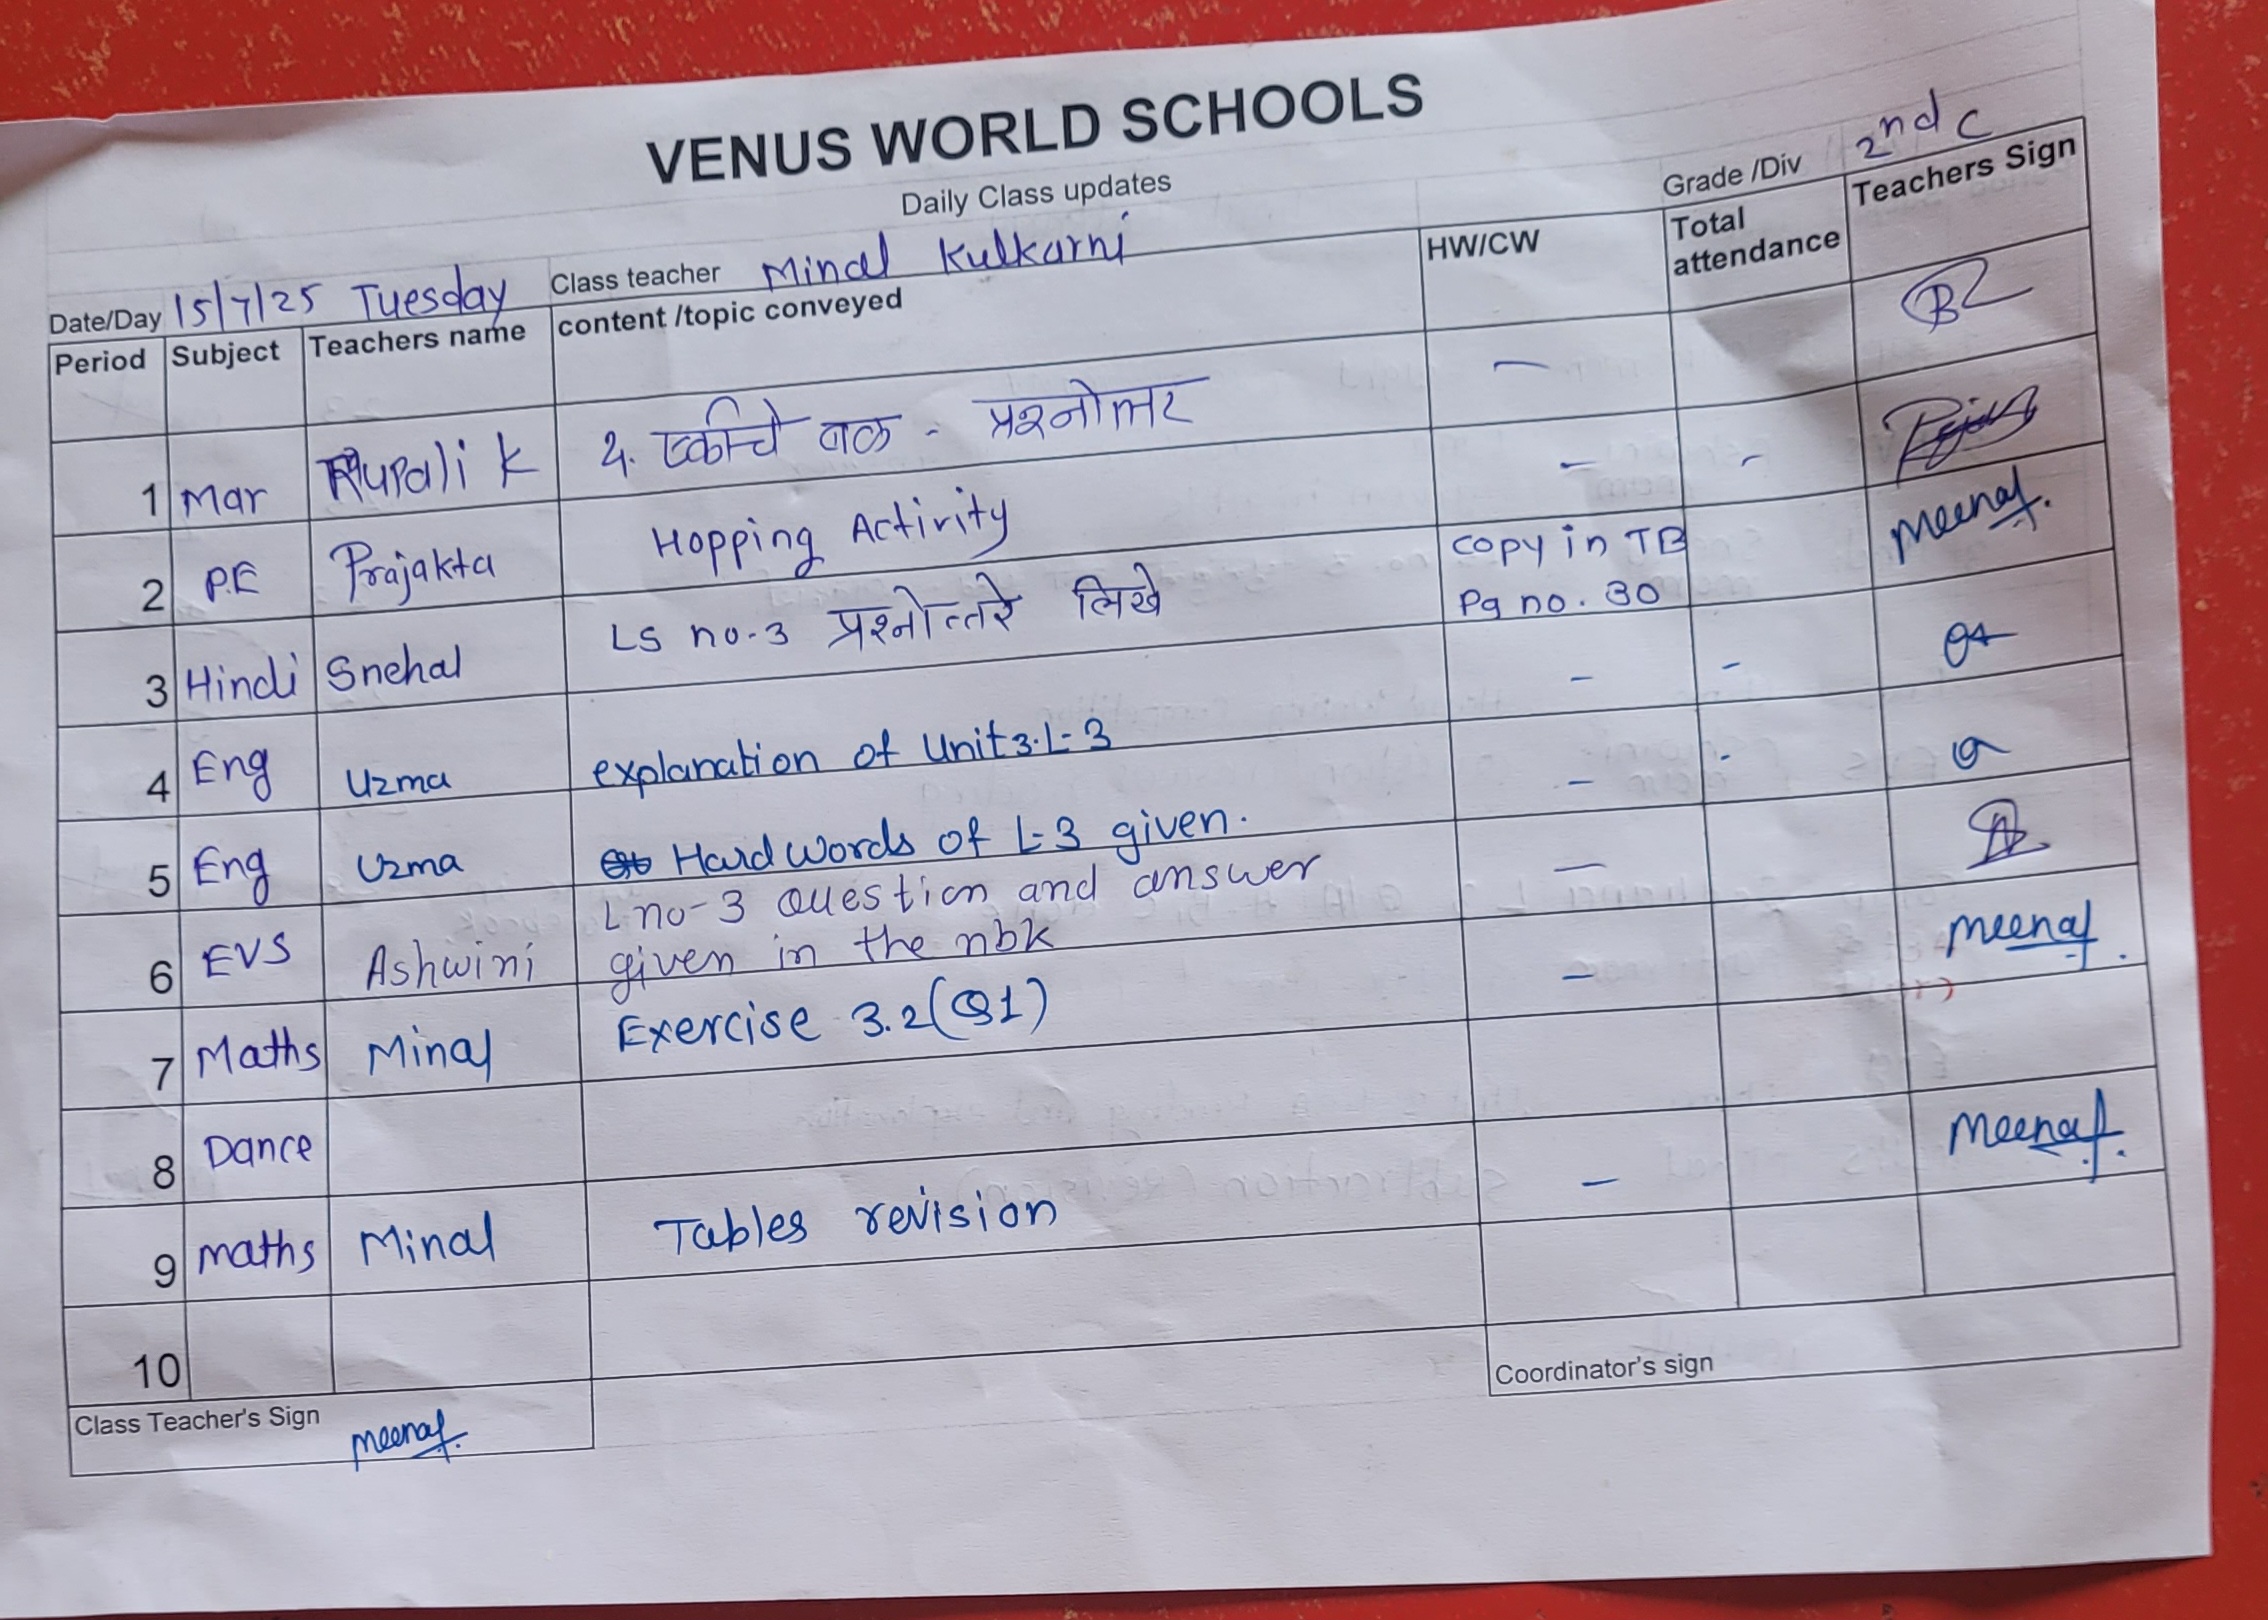 VENUS WORLD SCHOOLS
Daily Class updates
Grade /Div 2nd C
Date/Day 15/7/25 Tuesday Class teacher Minal Kulkarni
Period Subject Teachers name content /topic conveyed HW/CW Total attendance Teachers Sign
1 Mar Rupali K २. एकीचे बळ - प्रश्नोत्तर —
2 P.E Prajakta Hopping Activity - -
3 Hindi Snehal LS no-3 प्रश्नोत्तरे लिखे copy in TB Pg no. 30 meenal.
4 Eng Uzma explanation of Unit 3. L-3 - -
5 Eng Uzma Hard words of L-3 given. - -
6 EVS Ashwini L no-3 question and answer given in the nbk —
7 Maths Minal Exercise 3.2(Q1) - meenal.
8 Dance
9 maths Minal Tables revision - meenal.
10
Class Teacher's Sign meenal.
Coordinator's sign